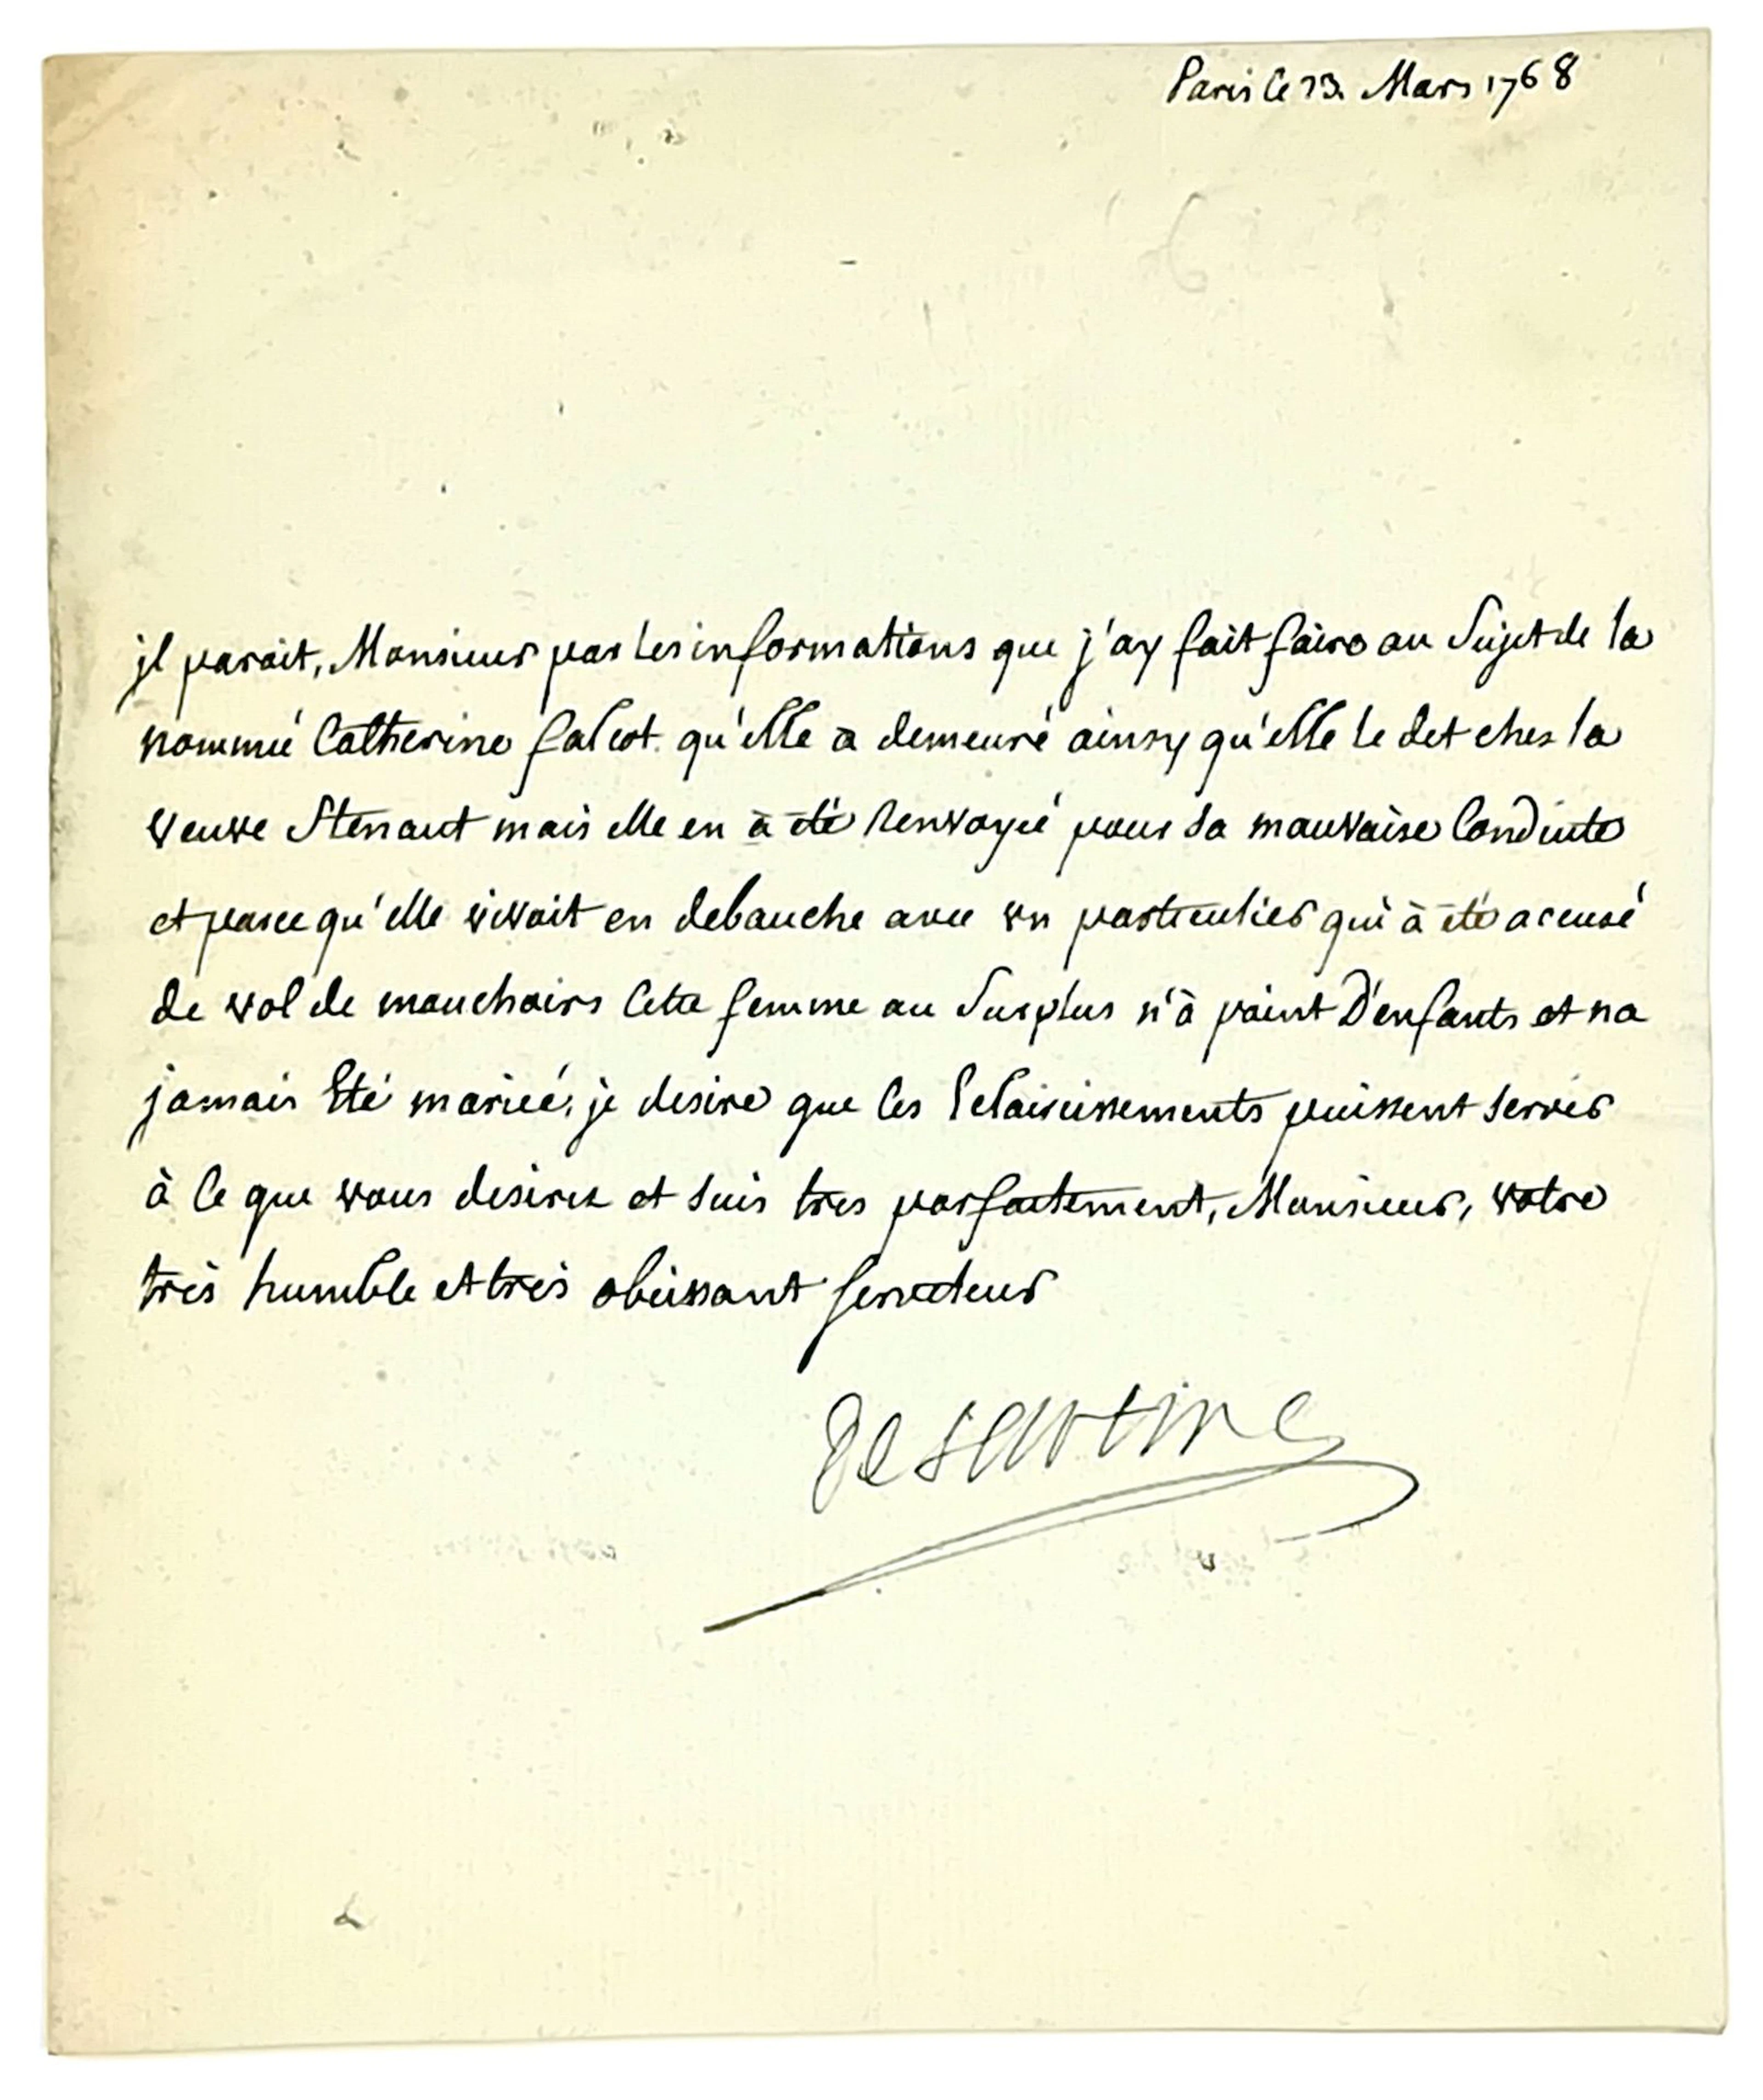 Paris le 23. Mars 1768
jl parait, Monsieur par les informations que j'ay fait faire au Sujet de la
nommé Catherine falcot qu'elle a demeuré ainsy qu'elle le dit chez la
veuve Stenaut mais elle en à été Renvoyé pour sa mauvaise Conduite
et parce qu'elle vivoit en debauche avec un particulier qui à été accusé
de vol de mouchoirs Cette femme au Surplus n'à point D'enfants et na
jamais Eté mariée. je desire que Ces Eclaircissements puissent servir
à Ce que vous desirez et suis tres parfaitement, Monsieur, votre
très humble et très obeissant serviteur
De Sartine